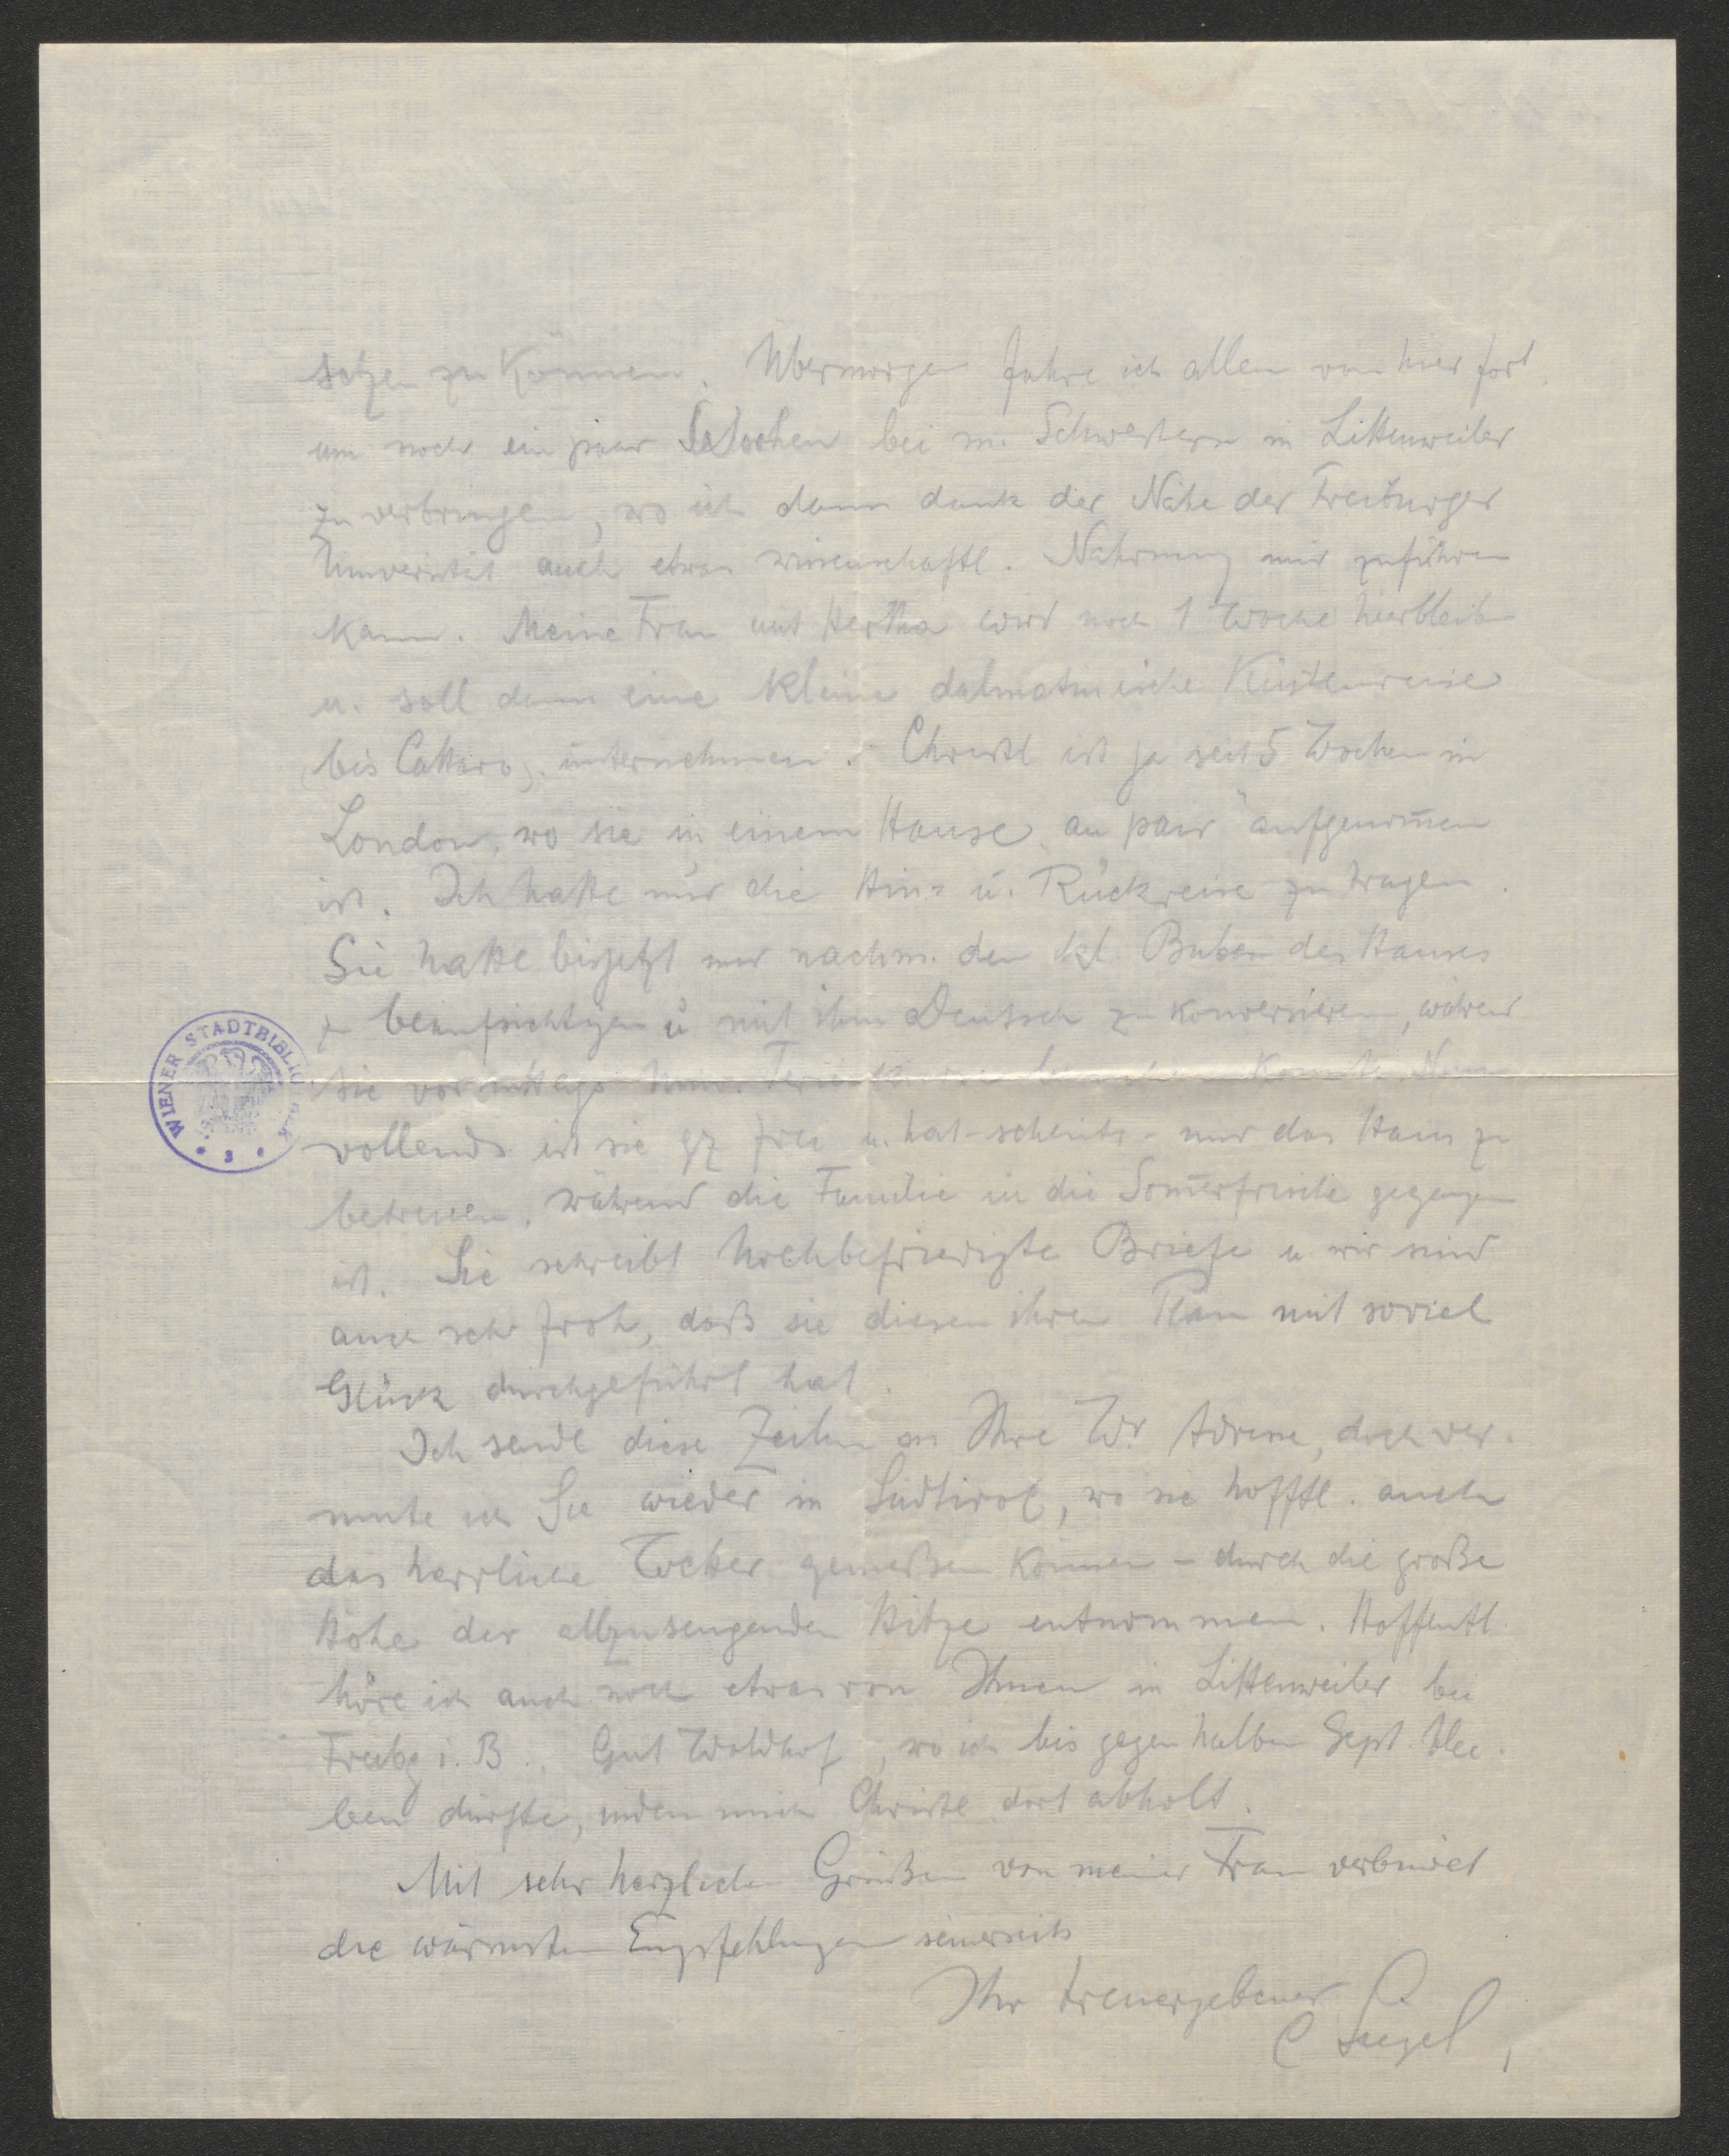 setzen zu können. Übermorgen fahre ich allein von hier fort,
um noch ein paar Wochen bei m. Schwestern in Littenweiler
zu verbringen, wo ich dann dank der Nähe der Freiburger
Universität auch etwas wissenschaftl. Nahrung mir zuführen
kann. Meine Frau mit Hertha wird noch 1 Woche hierbleiben
u. soll dann eine kleine dalmatinische Küstenreise
(bis Cattaro) unternehmen. Christl ist ja seit 5 Wochen in
London, wo sie in einem Hause „au pair“ aufgenom̄en
ist. Ich hatte nur die Hin- u. Rückreise zu tragen.
Sie hatte bisjetzt nur nachm. den kl. Buben des Hauses
zu beaufsichtigen u. mit ihm Deutsch zu konversieren, während
sie vormittags Univ. Ferienkurse besuchen konnte. Nun
vollends ist sie gz frei u. hat - scheints - nur das Haus zu
betreuen, während die Familie in die Som̄erfrische gegangen
ist. Sie schreibt hochbefriedigte Briefe u wir sind
auch sehr froh, daß sie diesen ihren Plan mit soviel
Glück durchgeführt hat.
Ich sende diese Zeilen an Ihre Wr Adresse, doch ver-
mute ich Sie wieder in Südtirol, wo sie hofftl. auch
das herrliche Wetter genießen können - durch die große
Höhe der allzusengenden Hitze entnommen. Hoffentl.
höre ich auch noch etwas von Ihnen in Littenweiler bei
Freibg i. B. Gut Waldhof, wo ich bis gegen halben Sept. blei-
ben dürfte, indem mich Christl dort abholt.
Mit sehr herzlichen Grüßen von meiner Frau verbindet
die wärmsten Empfehlungen seinerseits
Ihr treuergebener
C Siegel
WIENER STADTBIBLIOTHEK
3